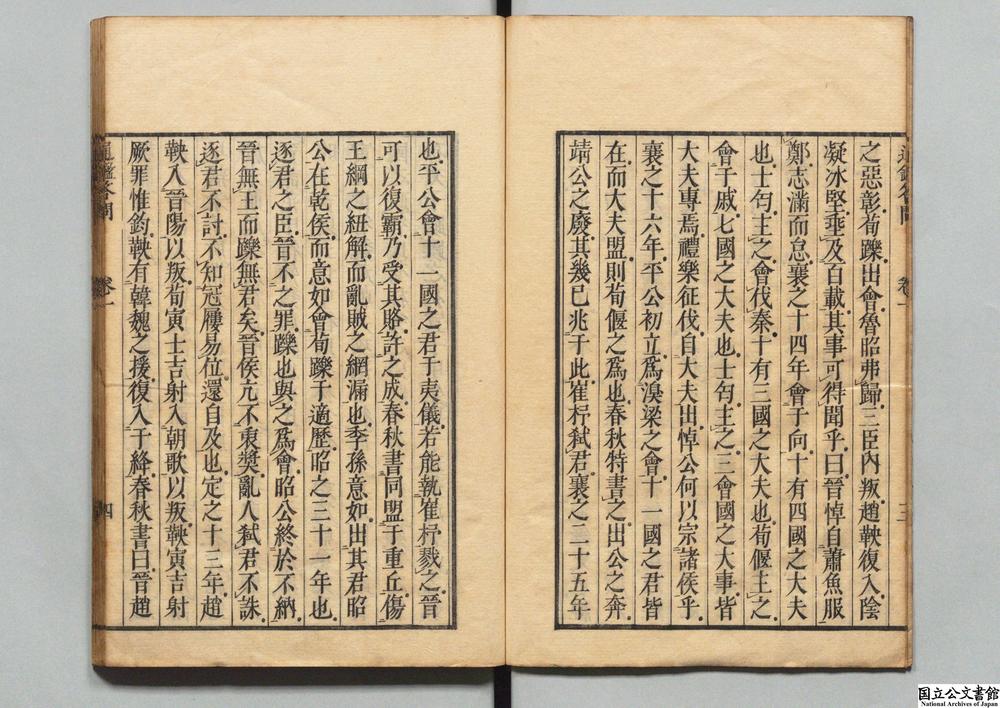 之惡彰荀躒出會魯昭弗歸三臣內叛趙鞅復入陰
凝冰堅垂及百載其事可得聞乎曰晉悼自蕭魚服
鄭志滿而怠襄之十四年會于向十有四國之大夫
也士匄主之會伐秦十有三國之大夫也荀偃主之
會于戚七國之大夫也士匄主之三會國之大事皆
大夫專焉禮樂征伐自大夫出悼公何以宗諸侯乎
襄之十六年平公初立爲溴梁之會十一國之君皆
在而大夫盟則荀偃之爲也春秋特書之出公之奔
靖公之廢其幾已兆于此崔杼弒君襄之二十五年
通鑑答問 卷一 三
也平公會十一國之君于夷儀若能執崔杼戮之晉
可以復霸乃受其賂許之成春秋書同盟于重丘傷
王綱之紐解而亂賊之網漏也季孫意如出其君昭
公在乾侯而意如會荀躒于適歷昭之三十一年也
逐君之臣晉不之罪躒也與之爲會昭公終於不納
晉無王而躒無君矣晉侯亢不衷獎亂人弒君不誅
逐君不討不知冠屨易位還自及也定之十三年趙
鞅入晉陽以叛荀寅士吉射入朝歌以叛鞅寅吉射
厥罪惟鈞鞅有韓魏之援復入于絳春秋書曰晉趙
通鑑答問 卷一 四
国立公文書館
National Archives of Japan